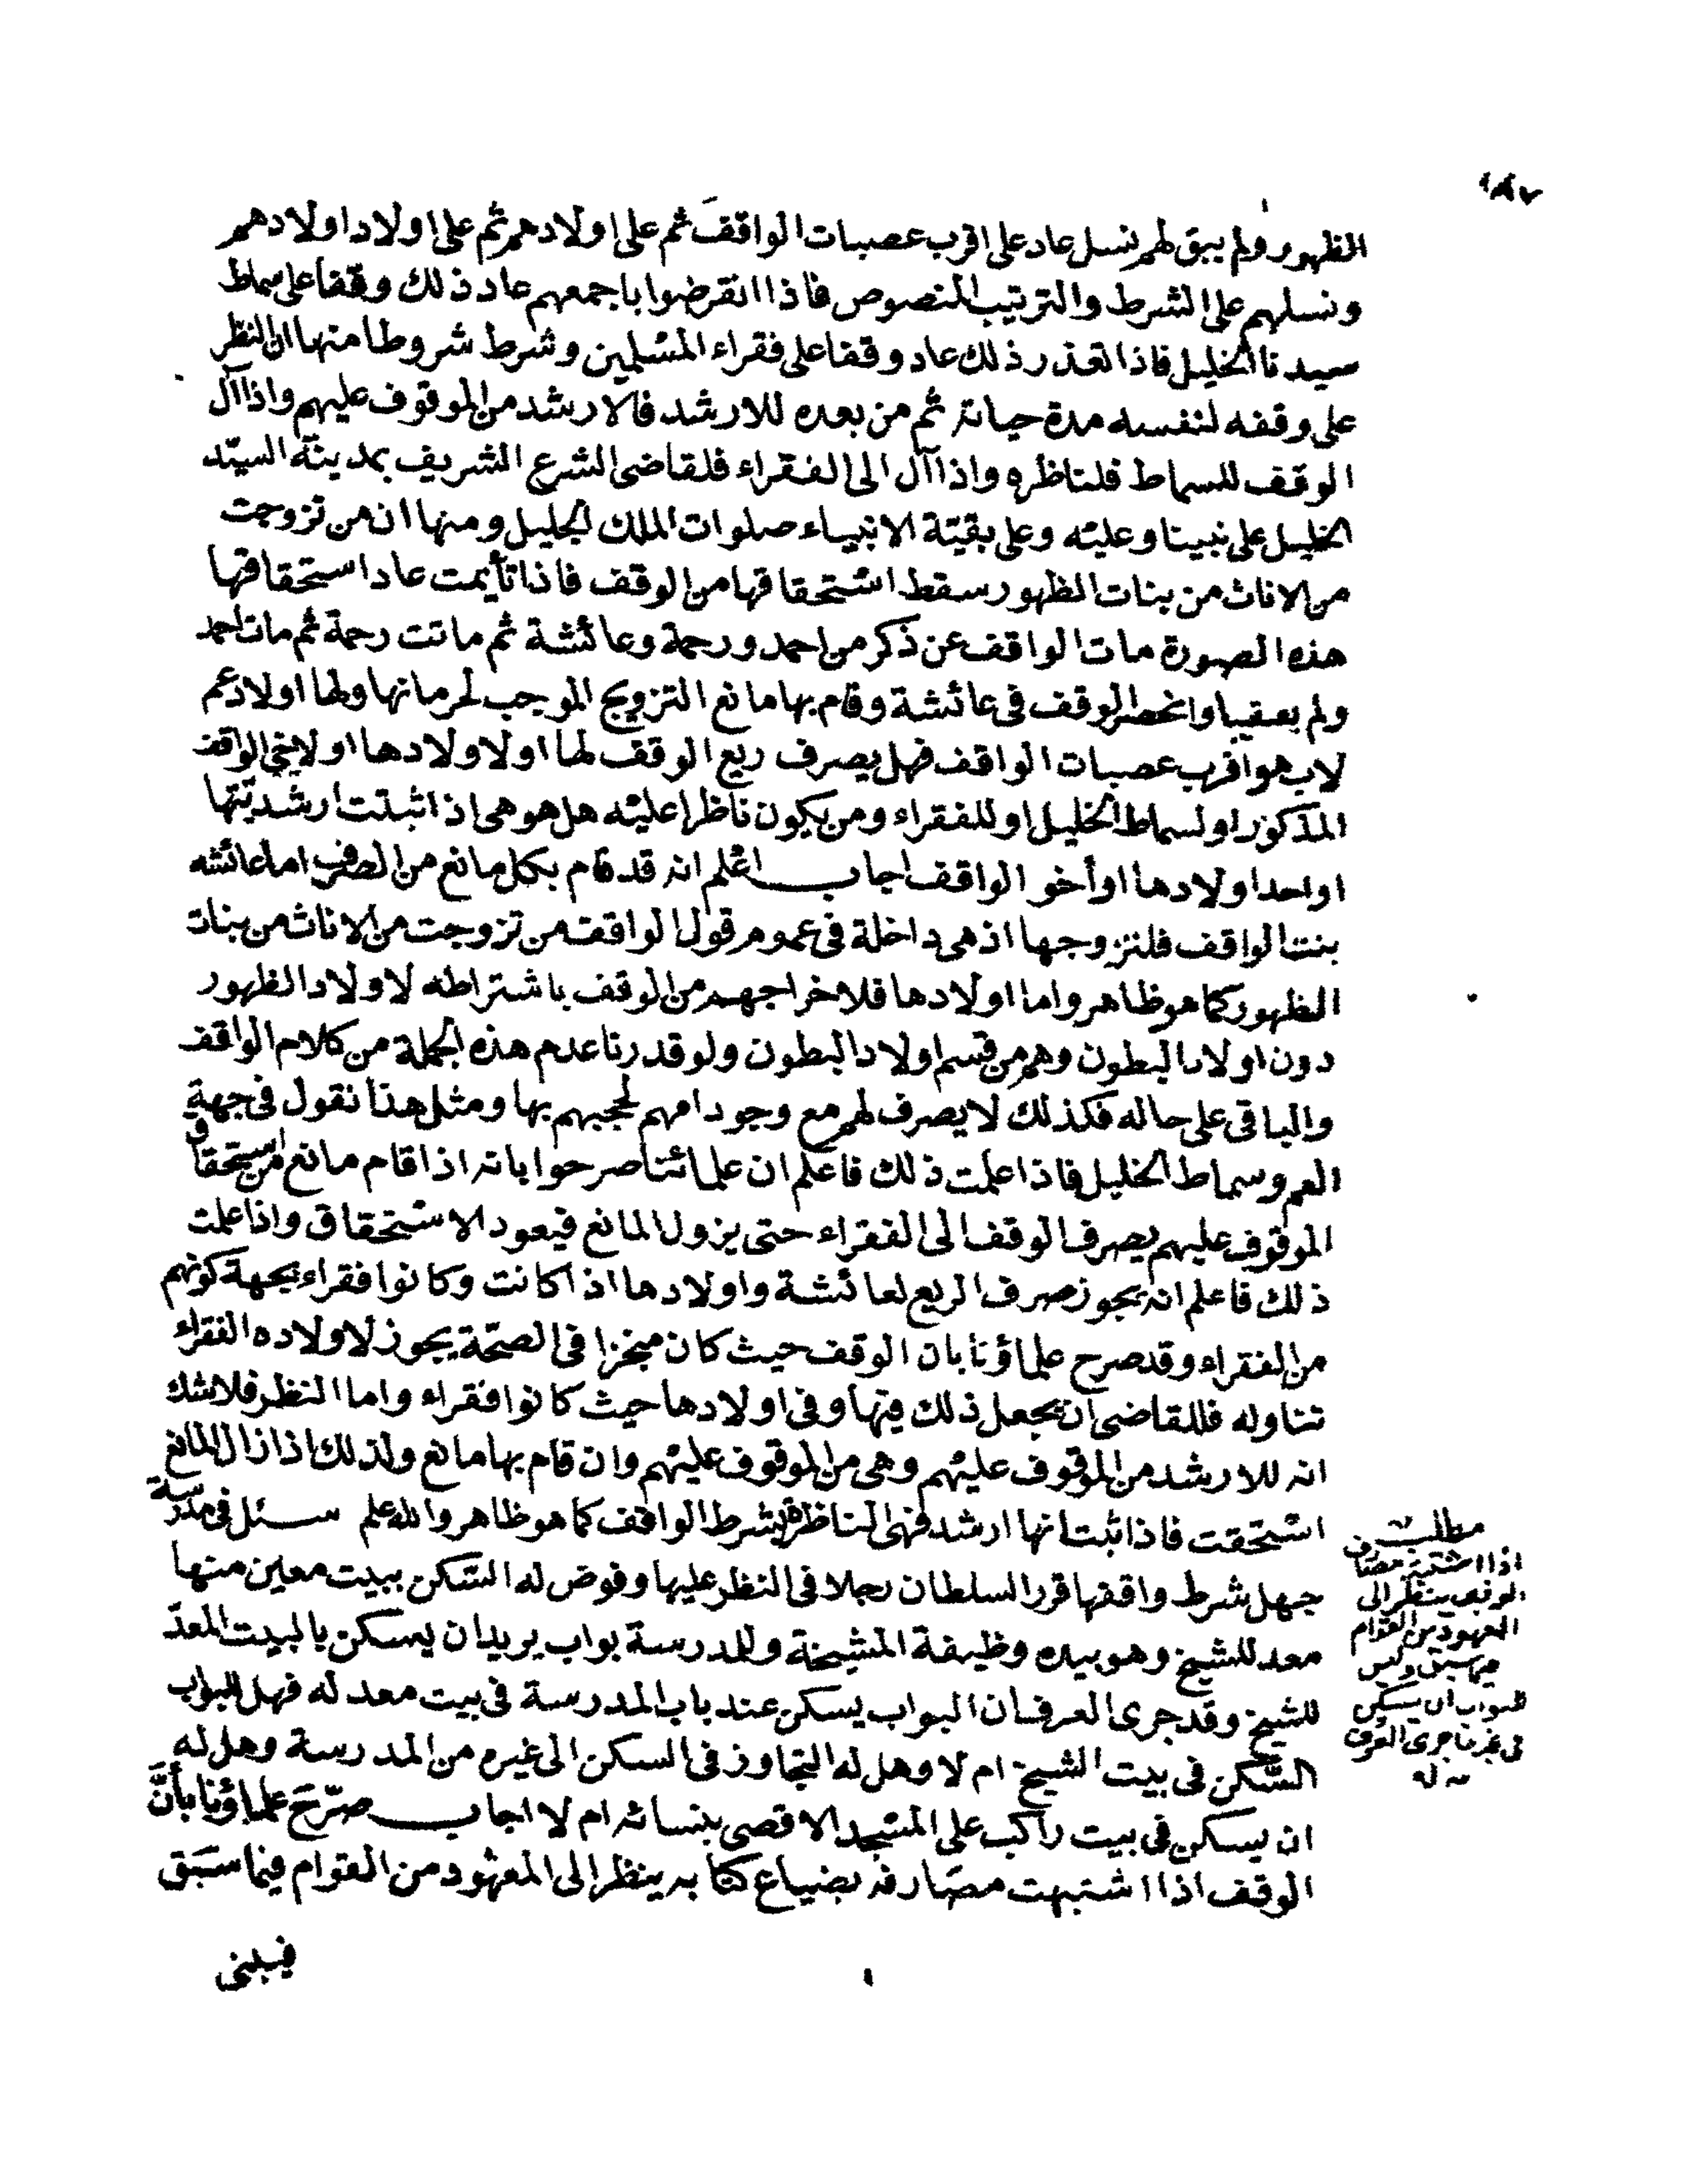 ١٨٧
الظهور ولم يبق لهم نسل عاد على اقرب عصبات الواقف ثم على اولادهم ثم على اولاد اولادهم
ونسلهم على الشرط والترتيب المنصوص فاذا انقرضوا باجمعهم عاد ذلك وقفا على سماط
سيدنا الخليل فاذا تعذر ذلك عاد وقفا على فقراء المسلمين وشرط شروطا منها ان النظر
على وقفه لنفسه مدة حياته ثم من بعده للارشد فالارشد من الموقوف عليهم واذا آل
الوقف للسماط فلناظره واذا آل الى الفقراء فلقاضى الشرع الشريف بمدينة السيد
الخليل على نبينا وعليه وعلى بقية الانبياء صلوات الملك الجليل ومنها ان من تزوجت
من الاناث من بنات الظهور سقط استحقاقها من الوقف فاذا تأيمت عاد استحقاقها
هذه الصورة مات الواقف عن ذكر من احمد ورحمة وعائشة ثم ماتت رحمة ثم مات احمد
ولم يعقبا وانحصر الوقف فى عائشة وقام بها مانع التزويج الموجب لحرمانها ولها اولاد عم
لاب هو اقرب عصبات الواقف فهل يصرف ريع الوقف لها او لاولادها او لاخى الواقف
المذكور او لسماط الخليل او للفقراء ومن يكون ناظرا عليه هل هو هى اذا ثبتت ارشديتها
او احد اولادها او أخو الواقف اجاب اعلم انه قد قام بكل مانع من الصرف اما عائشه
بنت الواقف فلتزوجها اذ هى داخلة فى عموم قول الواقف من تزوجت من الاناث من بنات
الظهور كما هو ظاهر واما اولادها فلاخراجهم من الوقف باشتراطه لاولاد الظهور
دون اولاد البطون وهم من قسم اولاد البطون ولو قدرنا عدم هذه الجملة من كلام الواقف
والباقى على حاله فكذلك لا يصرف لهم مع وجود امهم لحجبهم بها ومثل هذا نقول فى جهة
العم وسماط الخليل فاذا علمت ذلك فاعلم ان علمائنا صرحوا بانه اذا قام مانع من استحقاق
الموقوف عليهم يصرف الوقف الى الفقراء حتى يزول المانع فيعود الاستحقاق واذا علمت
ذلك فاعلم انه يجوز صرف الريع لعائشة واولادها اذا كانت وكانوا فقراء بجهة كونهم
من الفقراء وقد صرح علماؤنا بان الوقف حيث كان منجزا فى الصحة يجوز لاولاده الفقراء
تناوله فللقاضى ان يجعل ذلك فيها وفى اولادها حيث كانوا فقراء واما النظر فلا شك
انه للارشد من الموقوف عليهم وهى من الموقوف عليهم وان قام بها مانع ولذلك اذا زال المانع
استحقت فاذا ثبت انها ارشد فهى الناظرة بشرط الواقف كما هو ظاهر والله اعلم سئل فى مدرسة
جهل شرط واقفها قرر السلطان رجلا فى النظر عليها وفوض له السكن ببيت معين منها
معد للشيخ وهو بيده وظيفة المشيخة وللمدرسة بواب يريد ان يسكن بالبيت المعدّ
للشيخ وقد جرى العرف ان البواب يسكن عند باب المدرسة فى بيت معد له فهل للبواب
السكن فى بيت الشيخ ام لا وهل له التجاوز فى السكن الى غيره من المدرسة وهل له
ان يسكن فى بيت راكب على المسجد الاقصى بنسائه ام لا اجاب صرّح علماؤنا بأنَّ
الوقف اذا اشتبهت مصارفه بضياع كتابه ينظر الى المعهود من القوام فيما سبق
مطلب
اذا اشتبهت مصارف
الوقف ينظر الى
المعهود من القوام
فيما سبق وليس
للبواب ان يسكن
فى غير ما جرى العرف
به له
فيبنى